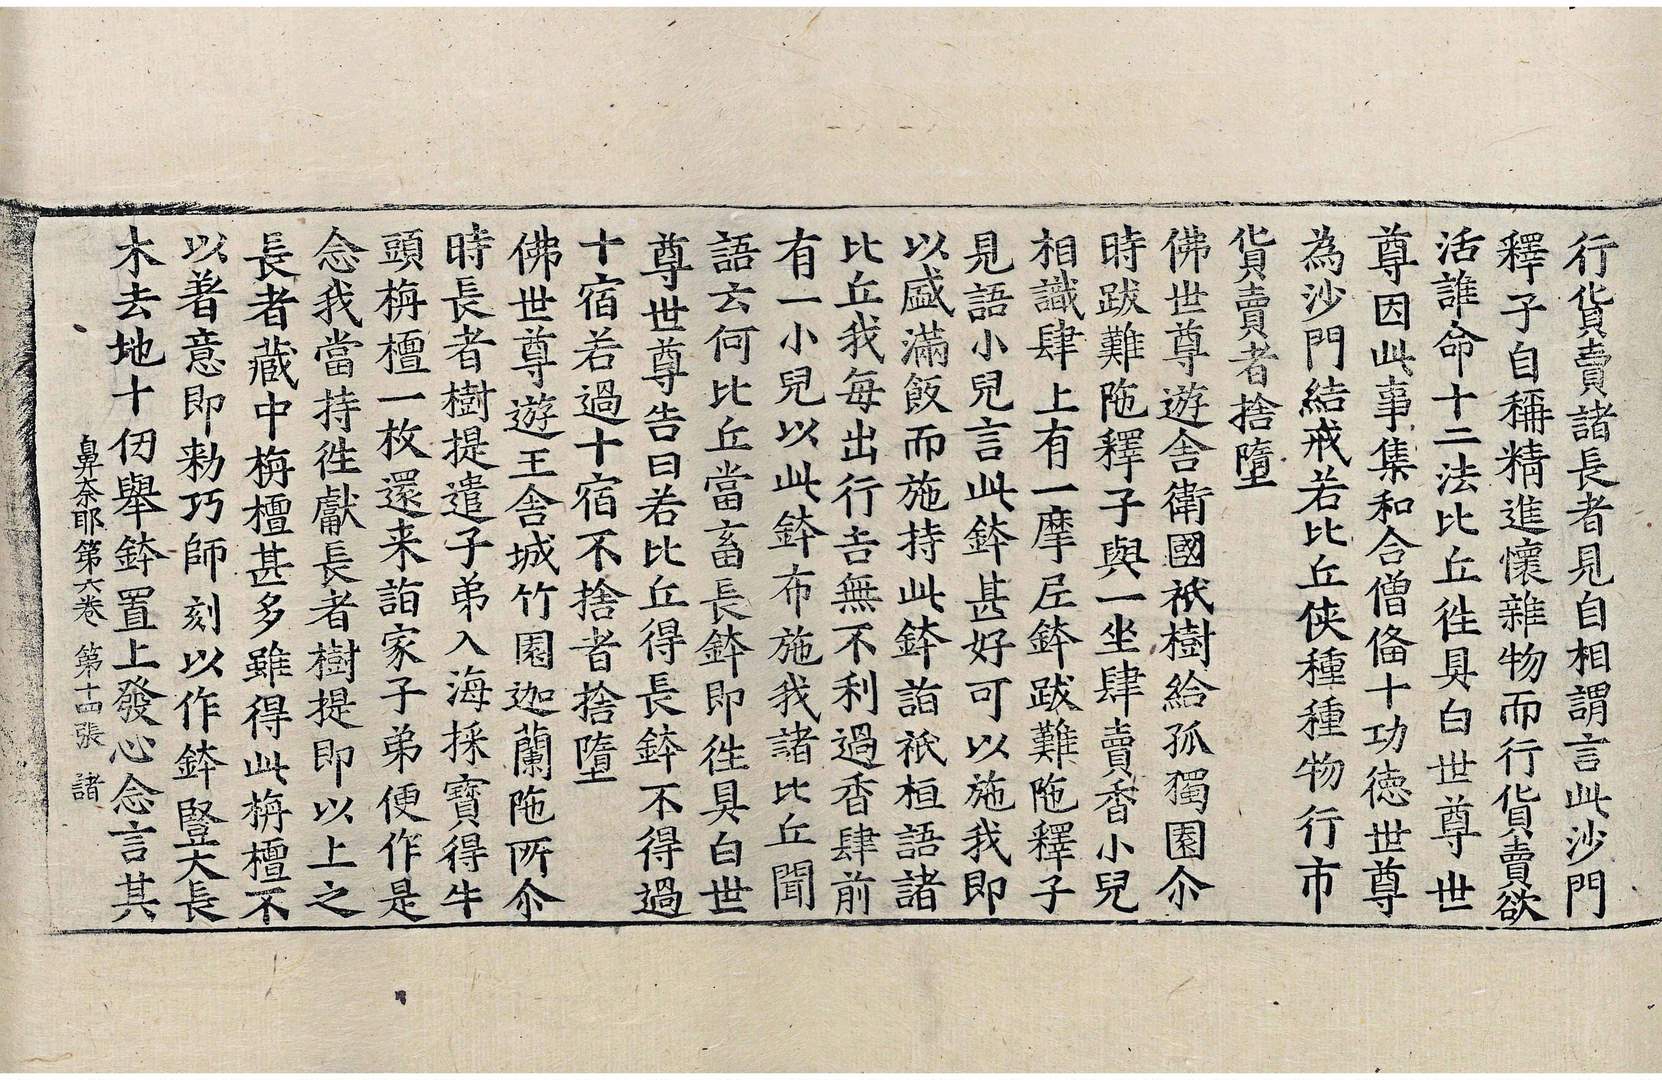 行貨賣諸長者見自相謂言此沙門
釋子自稱精進懷雜物而行貨賣欲
活誰命十二法比丘徃具白世尊世
尊因此事集和合僧俻十功德世尊
為沙門結戒若比丘侠種種物行市
貨賣者捨墮
佛世尊遊舍衛國祇樹給孤獨園尒
時跋難陁釋子與一坐肆賣香小兒
相識肆上有一摩尼鉢跋難陁釋子
見語小兒言此鉢甚好可以施我即
以盛滿飯而施持此鉢詣祇桓語諸
比丘我每出行吉無不利過香肆前
有一小兒以此鉢布施我諸比丘聞
語云何比丘當畜長鉢即徃具白世
尊世尊告曰若比丘得長鉢不得過
十宿若過十宿不捨者捨墮
佛世尊遊王舍城竹園迦蘭陁所尒
時長者樹提遣子弟入海採寶得牛
頭栴檀一枚還来詣家子弟便作是
念我當持徃獻長者樹提即以上之
長者藏中栴檀甚多雖得此栴檀不
以著意即勑巧師刻以作鉢豎大長
木去地十仞舉鉢置上發心念言其
鼻奈耶第六卷 第十四張 諸